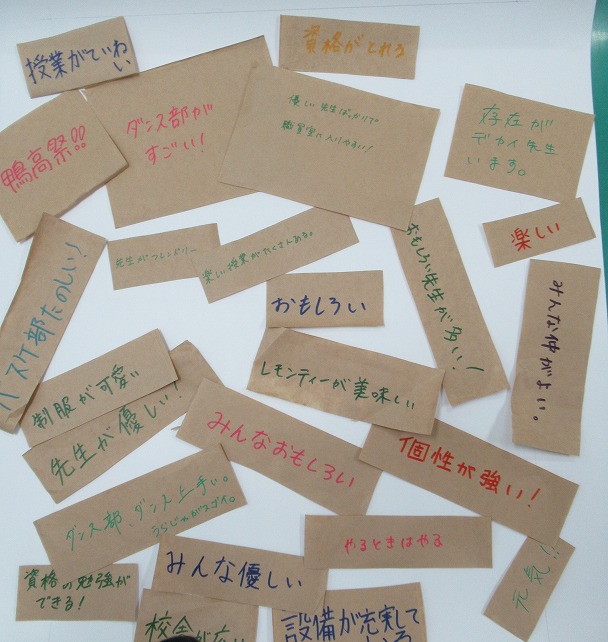 授業がていねい
資格がとれる
鴨高祭!!
ダンス部が
すごい!
優しい先生ばっかりで
職員室に入りやすい!
存在が
デカイ先生
います。
先生がフレンドリー
楽しい授業がたくさんある。
おもしろい先生が多い!
楽しい
バスケ部たのしい!
おもしろい
みんな仲がよい。
制服が可愛い
レモンティーが美味しい
先生が優しい!
みんなおもしろい
個性が強い!
ダンス部、ダンス上手い。
うらじゃがスゴイ。
やるときはやる
元気!!
みんな優しい
資格の勉強が
できる!
設備が充実して
いる